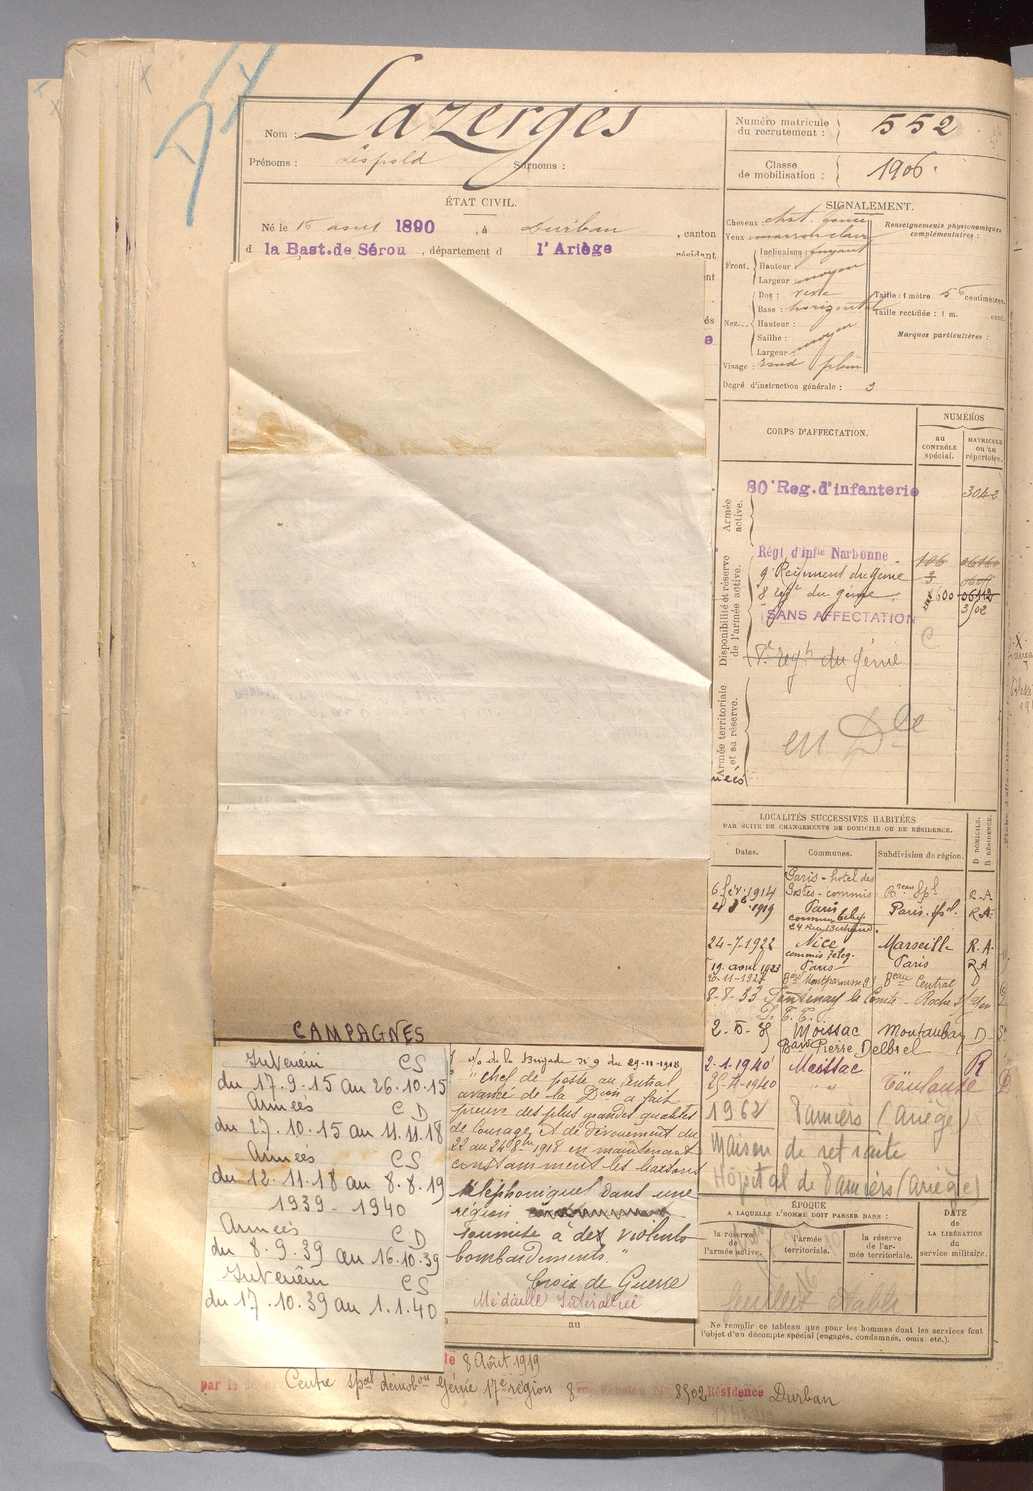 Nom : Lazerges
Prénoms : Léopold Surnoms :
Numéro matricule du recrutement : 552
Classe de mobilisation : 1906.
ÉTAT CIVIL.
Né le 15 août 1890, à Durban, canton
d la Bast. de Sérou, département d l'Ariège
résidant
SIGNALEMENT.
Cheveux : chat. foncé
Yeux : marron clair
Front. Inclinaison : fuyant
Hauteur :
Largeur : moyen
Nez... Dos :
Base : horizontal
Hauteur :
Saillie : moyen
Largeur :
Visage : rond plein
Renseignements physionomiques complémentaires :
Taille : 1 mètre 56 centimètres.
Taille rectifiée : 1 m. cent.
Marques particulières :
Degré d'instruction générale : 3
CORPS D'AFFECTATION.
NUMÉROS
au CONTRÔLE spécial.
MATRICULE ou au répertoire.
Armée active.
80e Reg. d'infanterie 3042
Disponibilité et réserve de l'armée active.
Régt d'Infie Narbonne 106
9e Régiment du Génie 3
8 régt du génie 8600 06112
SANS AFFECTATION 3/02
8e régt du Génie
Armée territoriale et sa réserve.
en Dle
LOCALITÉS SUCCESSIVES HABITÉES
PAR SUITE DE CHANGEMENTS DE DOMICILE OU DE RÉSIDENCE.
Dates. Communes. Subdivision de région. D DOMICILE. R RÉSIDENCE.
6 fév. 1914 Paris - hotel des Postes - commis R.A
1919 Paris Paris R.A.
24-7-1922 Nice Marseille R.A.
commis téleg.
19 août 1923 Paris Paris RA
Bard Montparnasse Central D
8-8-33 Fontenay le Comte - Roche s/Yon
Moissac Montauban D
Bard Pierre Delbrel
2-1-1940 Moissac R
25-4-1940 " " Toulouse D
1962 Pamiers (Ariège)
Maison de retraite
Hôpital de Pamiers (Ariège)
ÉPOQUE
A LAQUELLE L'HOMME DOIT PASSER DANS :
la réserve de l'armée active.
l'armée territoriale.
la réserve de l'armée territoriale.
DATE de la LIBÉRATION du service militaire.
feuillet établi
Ne remplir ce tableau que pour les hommes dont les services font l'objet d'un décompte spécial (engagés, condamnés, omis, etc.).
CAMPAGNES
Intérieur CS
du 17.9.15 au 26.10.15
Armées CD
du 27.10.15 au 11.11.18
Armées CS
du 12.11.18 au 8.8.19
1939 - 1940
Armées CD
du 8.9.39 au 16.10.39
Intérieur CS
du 17.10.39 au 1.1.40
o/o de la Brigade N° 9 du 29-11-1918
"Chef de poste au central
avancé de la Dion a fait
preuve des plus grandes qualités
de courage et de dévouement du
22 au 24 8bre 1918 en maintenant
constamment les liaisons
téléphoniques dans une
région
soumise à des violents
bombardements."
Croix de Guerre
Médaille Interalliée
au
le 8 Août 1919
par le Centre spal démobon Génie 17e région 8502 Résidence Durban